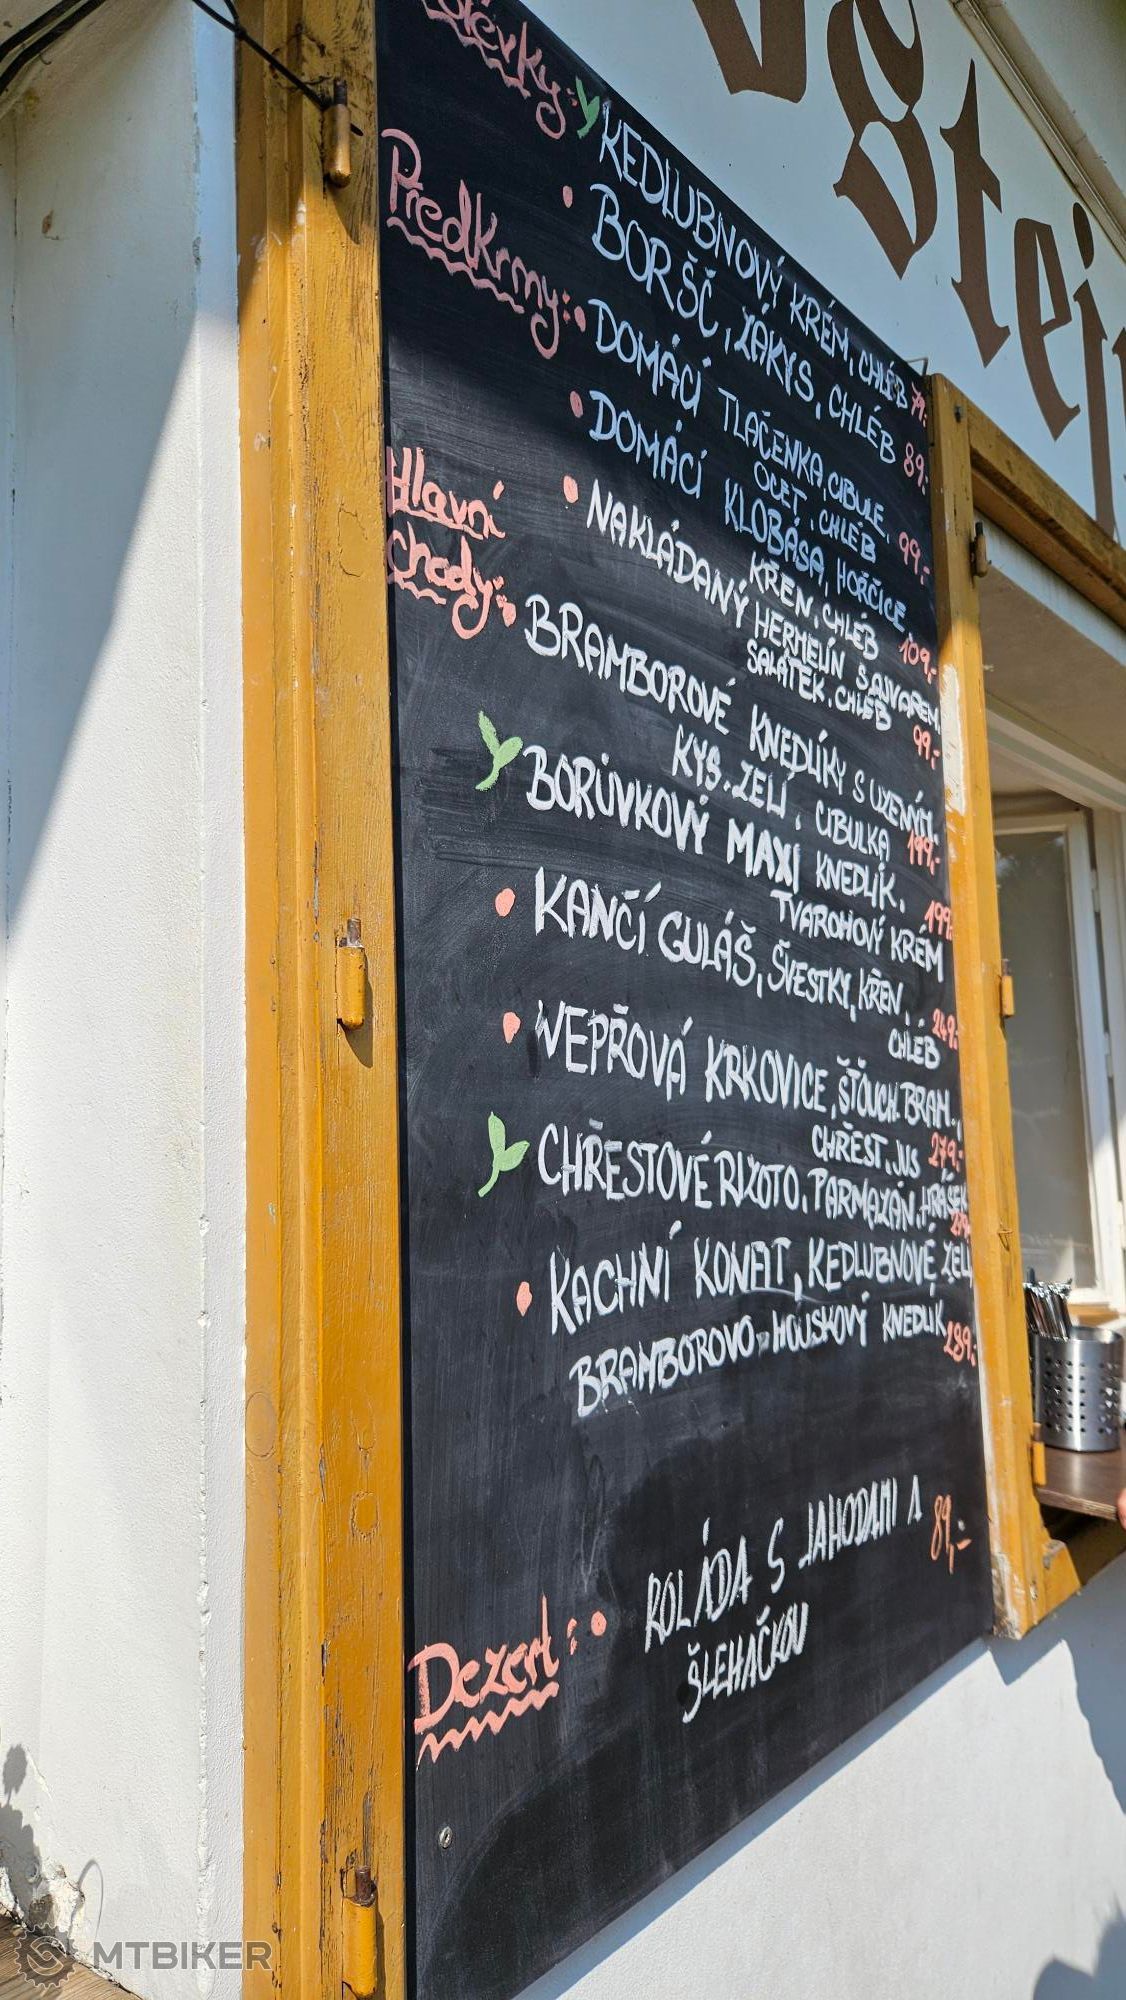 Polévky:
KEDLUBNOVÝ KRÉM, CHLÉB 79,-
BORŠČ, ZÁKYS, CHLÉB 89,-
Předkrmy:
DOMÁCÍ TLAČENKA, CIBULE,
OCET, CHLÉB 99,-
DOMÁCÍ KLOBÁSA, HOŘČICE,
KŘEN, CHLÉB 109,-
NAKLÁDANÝ HERMELÍN S AJVAREM,
SALÁTEK, CHLÉB 99,-
Hlavní
chody:
BRAMBOROVÉ KNEDLÍKY S UZENÝM,
KYS. ZELÍ, CIBULKA 199,-
BORŮVKOVÝ MAXI KNEDLÍK,
TVAROHOVÝ KRÉM 199,-
KANČÍ GULÁŠ, ŠVESTKY, KŘEN,
CHLÉB 249,-
VEPŘOVÁ KRKOVICE, ŠŤOUCH. BRAM.,
CHŘEST, JUS 279,-
CHŘESTOVÉ RIZOTO, PARMAZÁN, HRÁŠEK
KACHNÍ KONFIT, KEDLUBNOVÉ ZELÍ,
BRAMBOROVO-HOUSKOVÝ KNEDLÍK 289,-
Dezert:
ROLÁDA S JAHODAMI A 89,-
ŠLEHAČKOU
MTBIKER